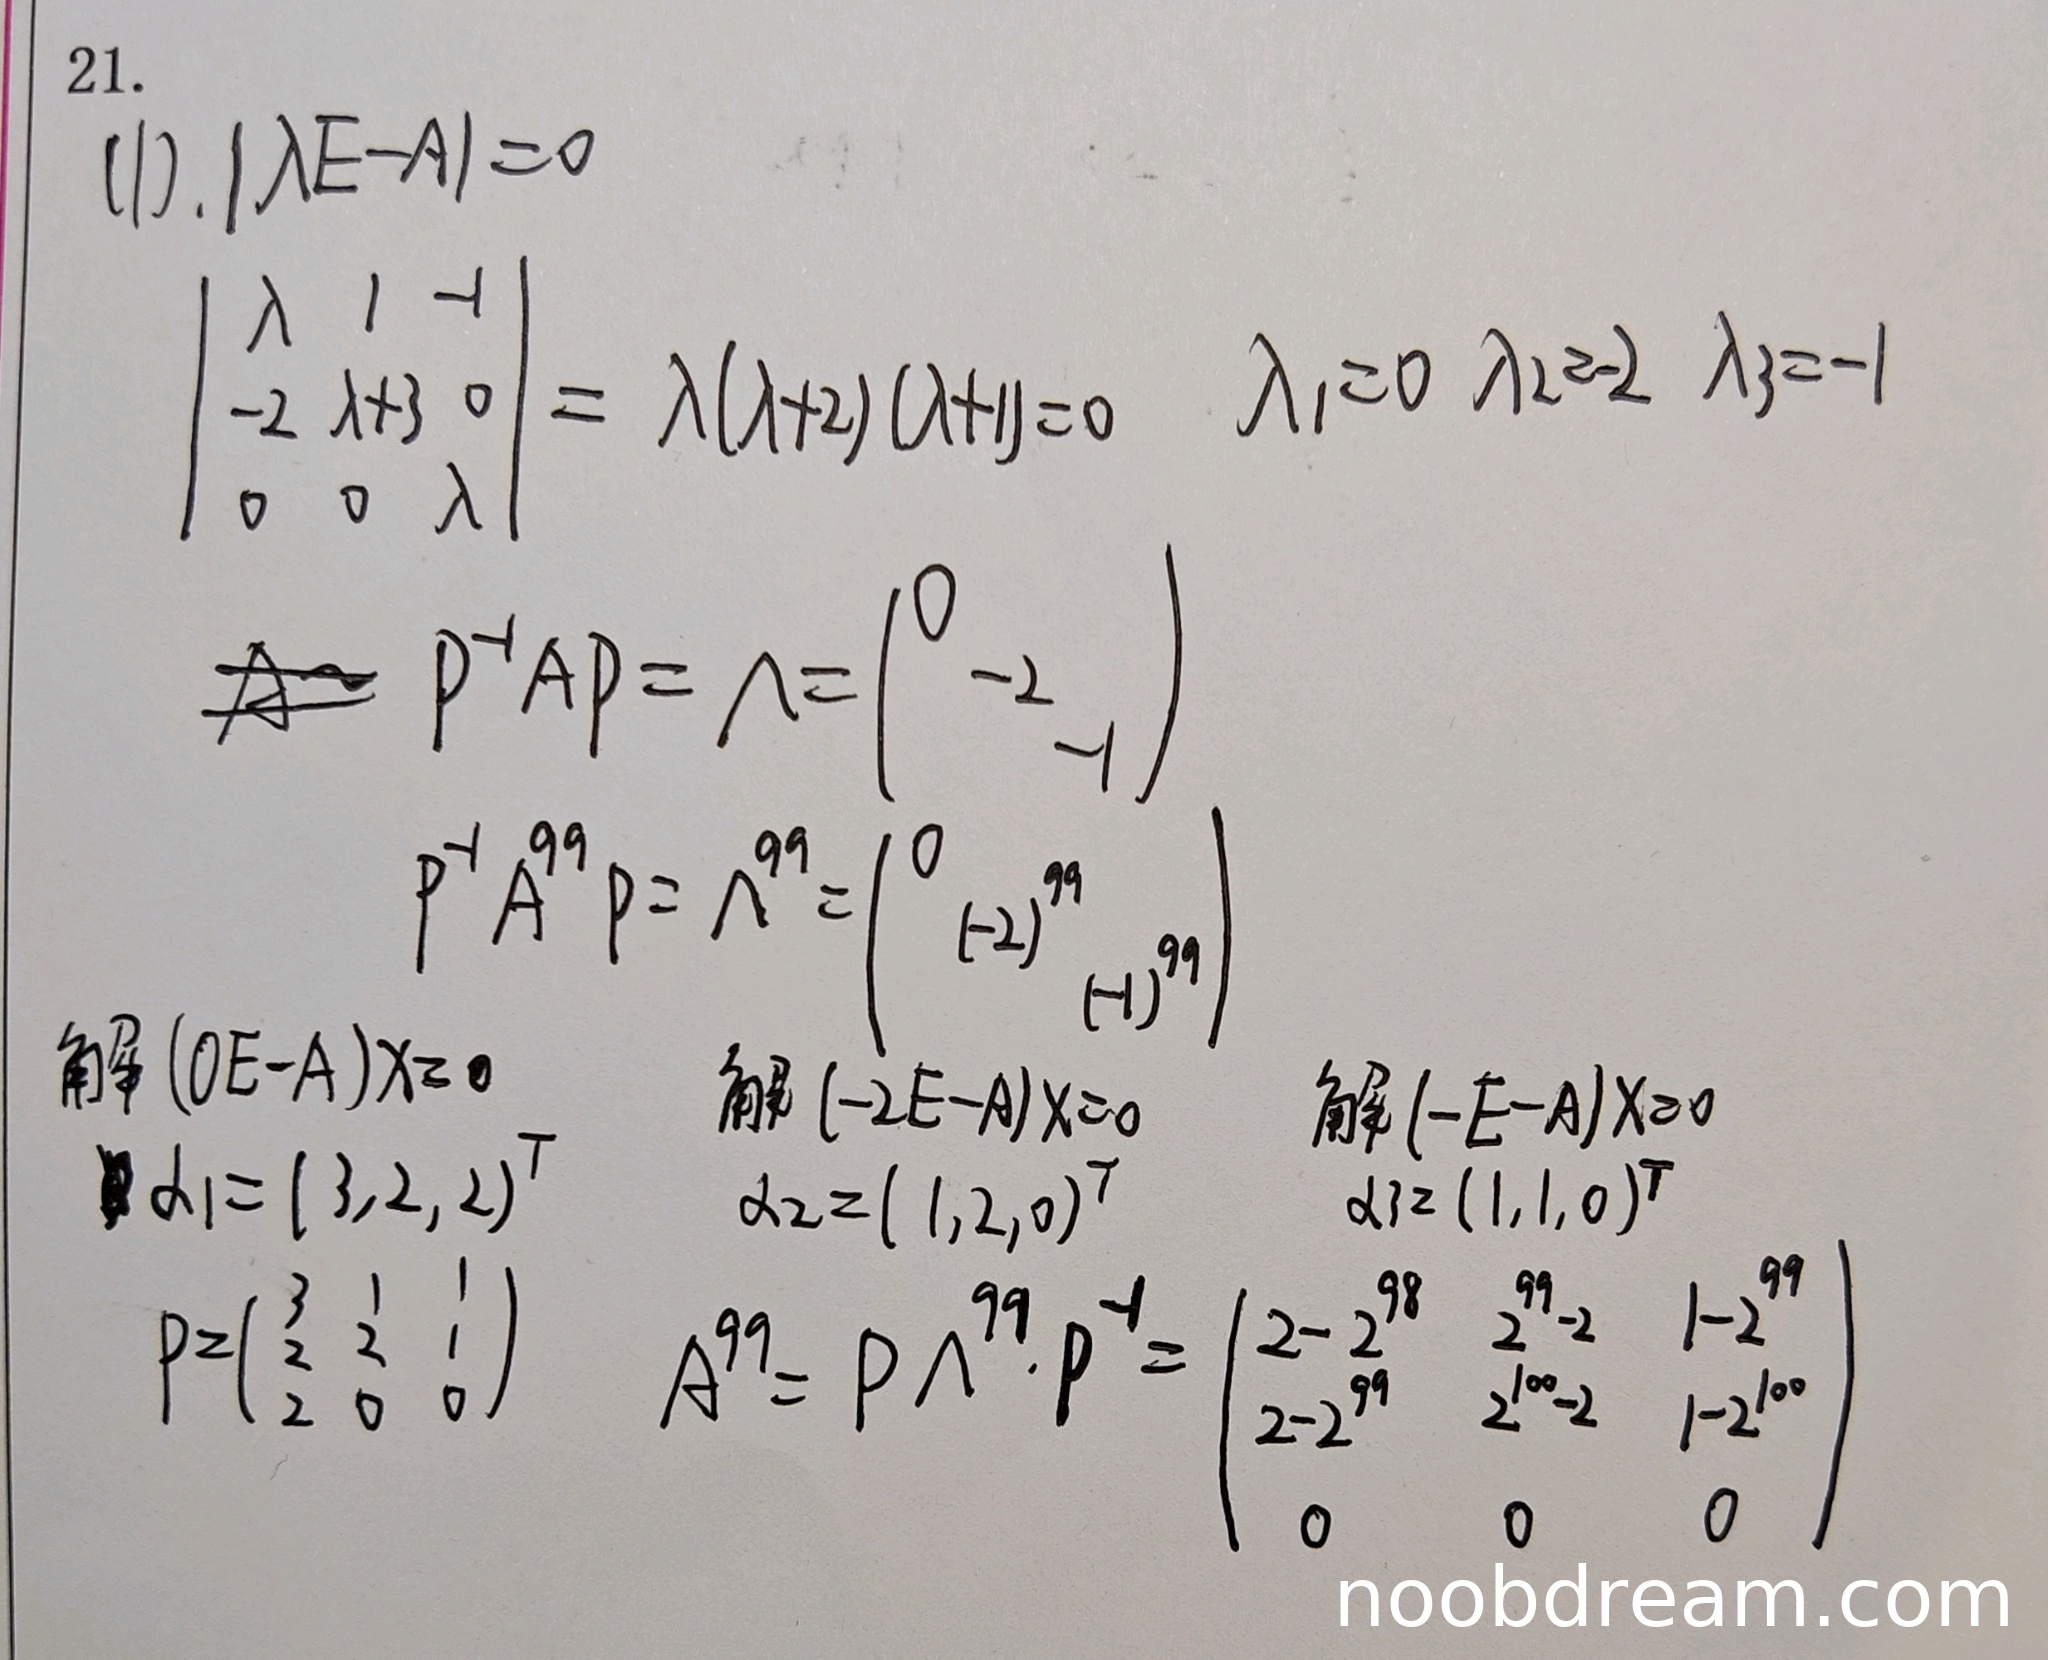 21.
(1). |λE-A|=0
| λ 1 -1 |
| -2 λ+3 0 | = λ(λ+2)(λ+1)=0 λ1=0 λ2=-2 λ3=-1
| 0 0 λ |
P⁻¹AP = Λ = ( 0
-2
-1 )
P⁻¹A⁹⁹P = Λ⁹⁹ = ( 0
(-2)⁹⁹
(-1)⁹⁹ )
解(0E-A)X=0 解(-2E-A)X=0 解(-E-A)X=0
α1=(3,2,2)ᵀ α2=(1,2,0)ᵀ α3=(1,1,0)ᵀ
P=( 3 1 1
2 2 1
2 0 0 )
A⁹⁹= PΛ⁹⁹·P⁻¹ = ( 2-2⁹⁸ 2⁹⁹-2 1-2⁹⁹
2-2⁹⁹ 2¹⁰⁰-2 1-2¹⁰⁰
0 0 0 )
noobdream.com